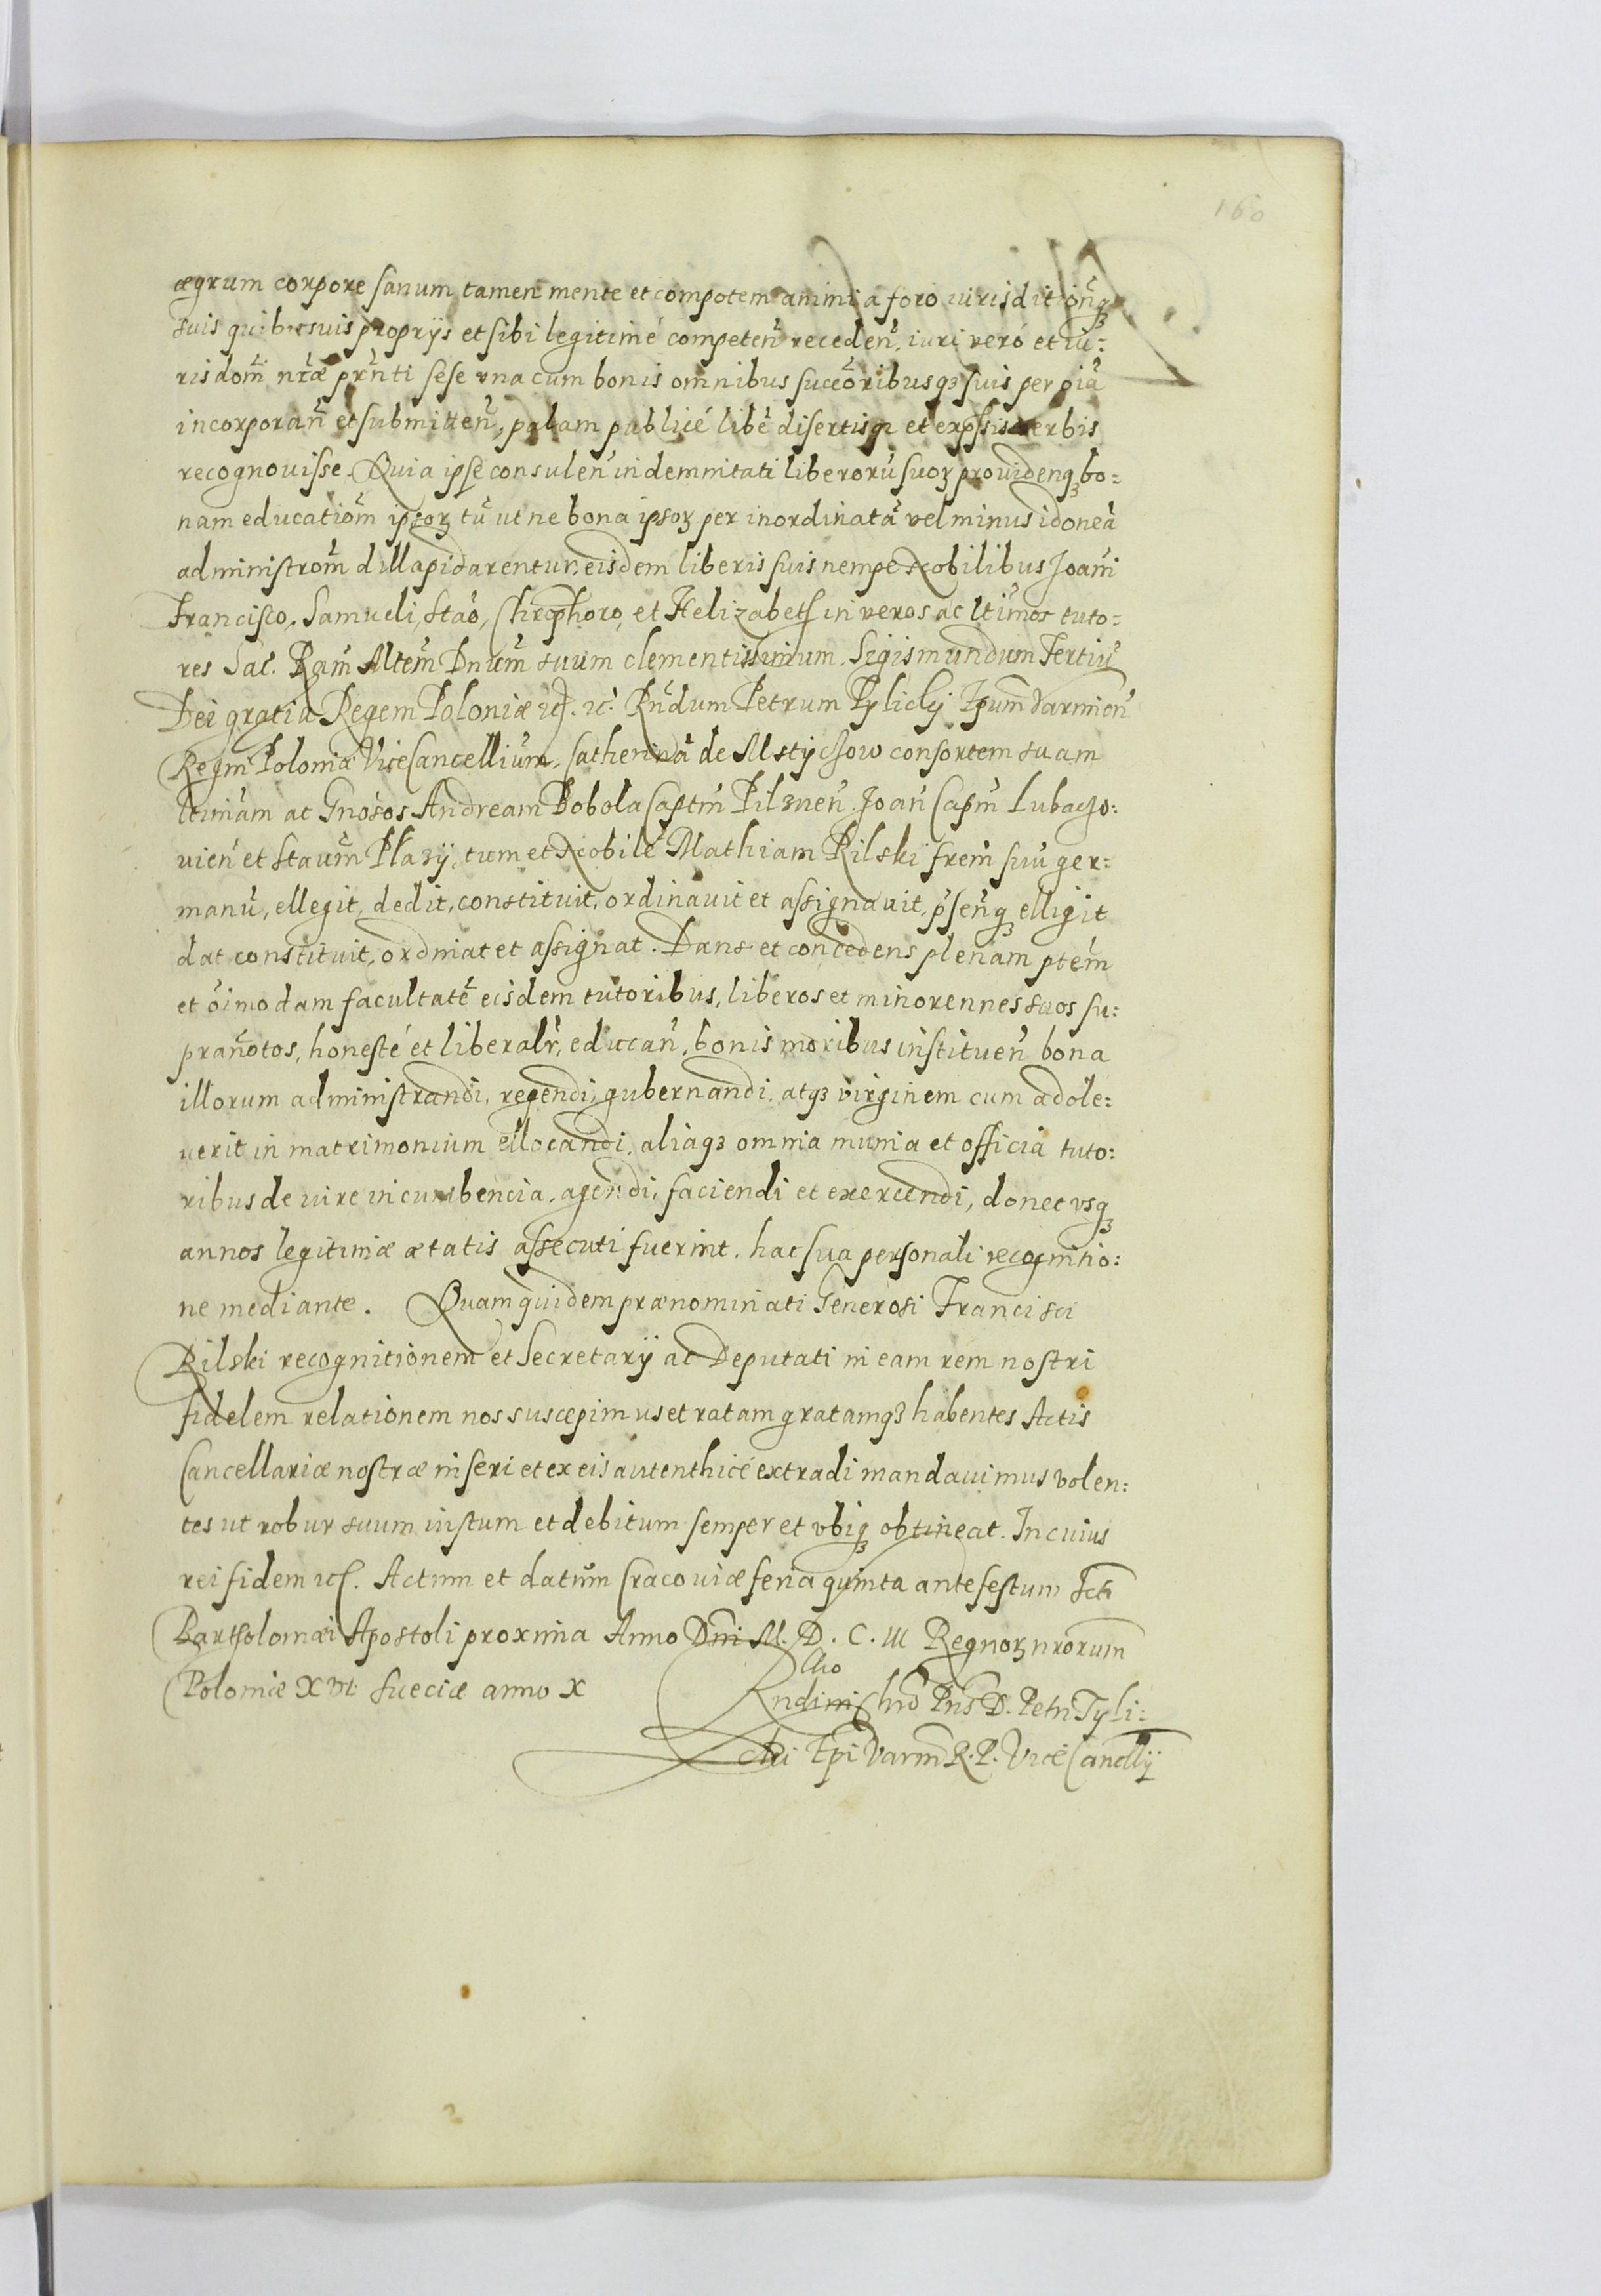 160
ægrum corpore sanum tamen mente et compotem animi a foro iurisditioñq
suis quibusuis proprÿs et sibi legitimé competeñ recedeñ, iuri veró et iu:
risdom̃ nr̃æ prñti sese vna cum bonis omnibus succõribusq3 suis per oiã
incorporañ et submitteñ, palam publicé libẽ disertisq3 et expssis verbis
recognouisse. Quia ipse consuleñ indemnitati liberorũ suoꝝ prouidenq3 bo:
nam educatiõm ipsoꝝ tũ ut ne bona ipsoꝝ per inordinatã vel minus idoneã
administrom̃ dillapidarentur, eisdem liberis suis nempe Nobilibus Joañi
Francisco, Samueli, Stão, Chrophoro, et Helizabeth in veros ac ltimos tuto:
res Sac. Ram̃ Mltem̃ Dnum̃ suum clementissimum Sigismundum Tertiũ
Dei gratia Regem Poloniæ zc. zc. Rñdum Petrum Tylicky Epum Varmieñ
Regni Poloniæ ViceCancellium̃, Catherinã de Mstyczow consortem suam
ltimam ac Gnosos Andream Bobola Captm̃ Pilzneñ. Joañ Capm̃ Lubaczo:
uieñ et Staum̃ Plazÿ, tum et Nobilẽ Mathiam Rilski frem̃ suũ ger:
manũ, ellegit, dedit, constituit, ordinauit et assignauit, p̃señq3 elligit
dat constituit, ordinat et assignat. Dans et concedens plenam ptem̃
et õimodam facultatẽ eisdem tutoribus, liberos et minorennes suos su:
prañotos, honesté et liberalr̃, educañ, bonis moribus institueñ bona
illorum administrandi, regendi, gubernandi, atq3 virginem cum adole:
uerit in matrimonium ellocandi, aliaq3 omnia munia et officia tuto:
ribus de iure incumbencia, agendi, faciendi et exercendi, donec vsq3
annos legitimæ ætatis assecuti fuerint. hac sua personali recognitio:
ne mediante. Quam quidem prænominati Generosi Francisci
Rilski recognitionem et Secretarÿ ac Deputati in eam rem nostri
fidelem relationem nos suscepimus et ratam gratamq3 habentes Actis
Cancellariæ nostræ inseri et ex eis autenthicé extradi mandauimus volen:
tes ut robur suum iustum et debitum semper et vbiq3 obtineat. In cuius
rei fidem zc. Actum et datum Cracouiæ feria quinta ante festum Scti
Bartholomæi Apostoli proxima Anno Dni M. D. C. III Regnoꝝ nrorum
Poloniæ XVI. Sueciæ anno X
Rlio
Rndimi Chro Pris D. Petri Tyli:
cki Epi Varm R. P. Vice Cancllÿ